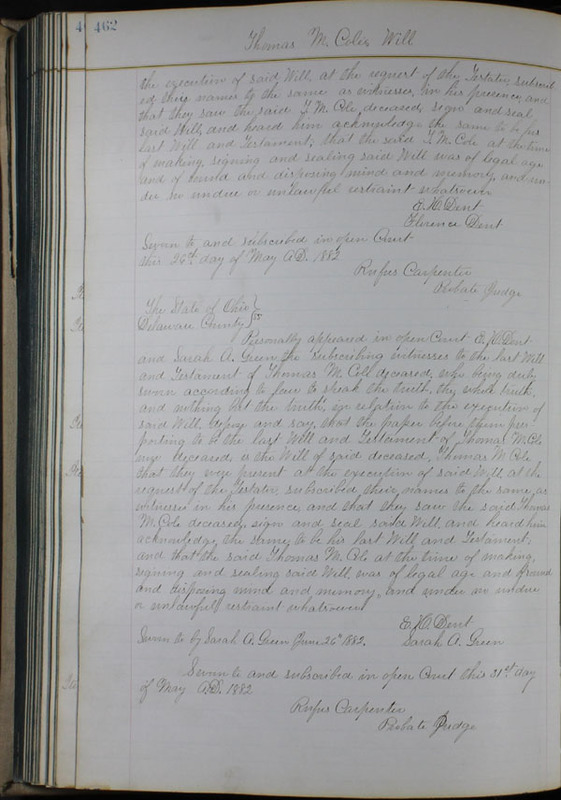 462
Thomas M. Coles Will
the execution of said Will, at the request of the Testator, subscrib
ed their names to the same as witnesses, in his presence, and
that they saw the said T. M. Cole, deceased, sign and seal
said Will, and heard him acknowledge the same to be his
last Will and Testament; that the said T. M. Cole at the time
of making, signing and sealing said Will was of legal age
and of sound and disposing mind and memory, and un-
der no undue or unlawful restraint whatsoever
E. H. Dent
Florence Dent
Sworn to and subscribed in open Court
this 26th day of May A.D. 1882
Rufus Carpenter
Probate Judge
The State of Ohio }
Delaware County } ss
Personally appeared in open Court E. H. Dent
and Sarah A. Green, the subscribing witnesses to the last Will
and Testament of Thomas M. Cole deceased, who being duly
sworn according to law to speak the truth, the whole truth,
and nothing but the truth, in relation to the execution of
said Will, depose and say, that the paper before them pur-
porting to be the last Will and Testament of Thomas M. Cole
now deceased, is the Will of said deceased, Thomas M. Cole
that they were present at the execution of said Will, at the
request of the Testator, subscribed their names to the same, as
witnesses in his presence, and that they saw the said Thomas
M. Cole deceased, sign and seal said Will, and heard him
acknowledge the same, to be his last Will and Testament;
and that the said Thomas M. Cole at the time of making,
signing and sealing said Will, was of legal age and of sound
and disposing mind and memory, and under no undue
or unlawful restraint whatsoever
E. H. Dent
Sworn to by Sarah A. Green June 26th 1882. Sarah A. Green
Sworn to and subscribed in open Court this 31st day
of May A.D. 1882
Rufus Carpenter
Probate Judge